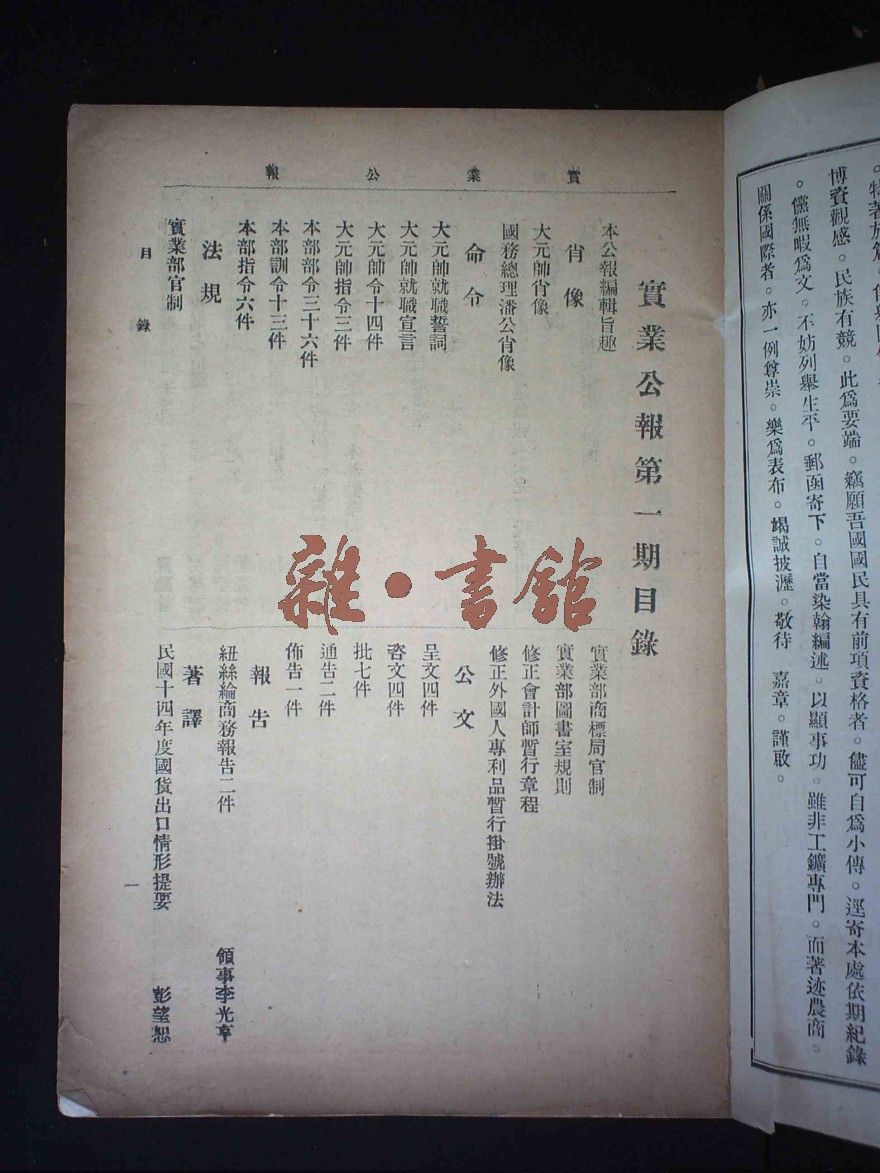 博資觀感。民族有競。此爲要端。竊願吾國國民具有前項資格者。儘可自爲小傳。逕寄本處依期紀錄
。儻無暇爲文。不妨列舉生平。郵函寄下。自當染翰編述。以顯事功。雖非工鑛專門。而著迹農商。
關係國際者。亦一例尊崇。樂爲表布。竭誠披瀝。敬待　嘉章。謹啟。
實業公報
實業公報第一期目錄
本公報編輯旨趣
肖像
大元帥肖像
國務總理潘公肖像
命令
大元帥就職誓詞
大元帥就職宣言
大元帥令十四件
大元帥指令三件
本部部令三十六件
本部訓令十三件
本部指令六件
法規
實業部官制
實業部商標局官制
實業部圖書室規則
修正會計師暫行章程
修正外國人專利品暫行掛號辦法
公文
呈文四件
咨文四件
批七件
通告二件
佈告一件
報告
紐絲綸商務報告二件　領事李光亨
著譯
民國十四年度國貨出口情形提要　彭望恕
目錄
一
雜·書館